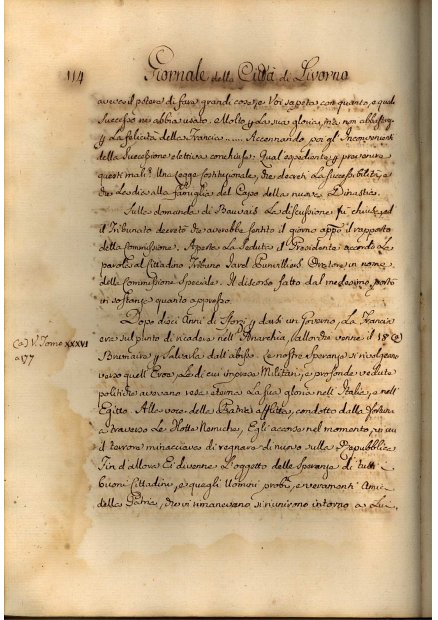 114 Giornale della Città di Livorno
aveve il potere di fare grandi cose ec. Voi sapete con quanto, e qual
successo ne abbia usato. Molto p la sua gloria, mà non abbastanza
p La felicità della Francia....... Accennando poi gl' Inconvenienti
della Successione elettiva conchiuse: Qual espediente p prevenire
questi mali? Una Legge Costituzionale, che decreti La successibilità, e
che Le dia alla Famiglia del Capo della nuova Dinastia.
Sulla domanda di Bauvais La discussione fù chiusa, ed
il Tribunato decretò che avrebbe sentito il giorno appo il rapporto
della Commissione. Aperta La Seduta il Presidente accordò La
parola al Cittadino Tribuno Jard Panvilliers Oratore in nome
della Commissione Speciale. Il discorso fatto dal medesimo portò
in sostanza quanto appresso.
Dopo dieci Anni di sforzi p darsi un Governo, La Francia
era sul punto di ricadere nell' Anarchia, allorchè venne il 18 (a)
Brumaire p Salvarla dall' abisso. Le nostre speranze si rivolgevano
verso quell' Eroe, Le di cui imprese Militari, e profonde vedute
politiche avevano resa eterna La sua gloria nell' Italia, e nell'
Egitto. Alla voce della Patria afflitta, condotto dalla Fortuna
a traverso Le Flotte Nemiche, Egli accorse nel momento, in cui
il terrore minacciava di regnare di nuovo sulla Repubblica
Fin d' allora Ei divenne L' oggetto delle speranze di tutti i
buoni Cittadini, e quegli Uomini probi, e veramente Amici
della Patria, che vi rimanevano si riunirono intorno a Lui
(a) V. Tomo XXXVI
a 177